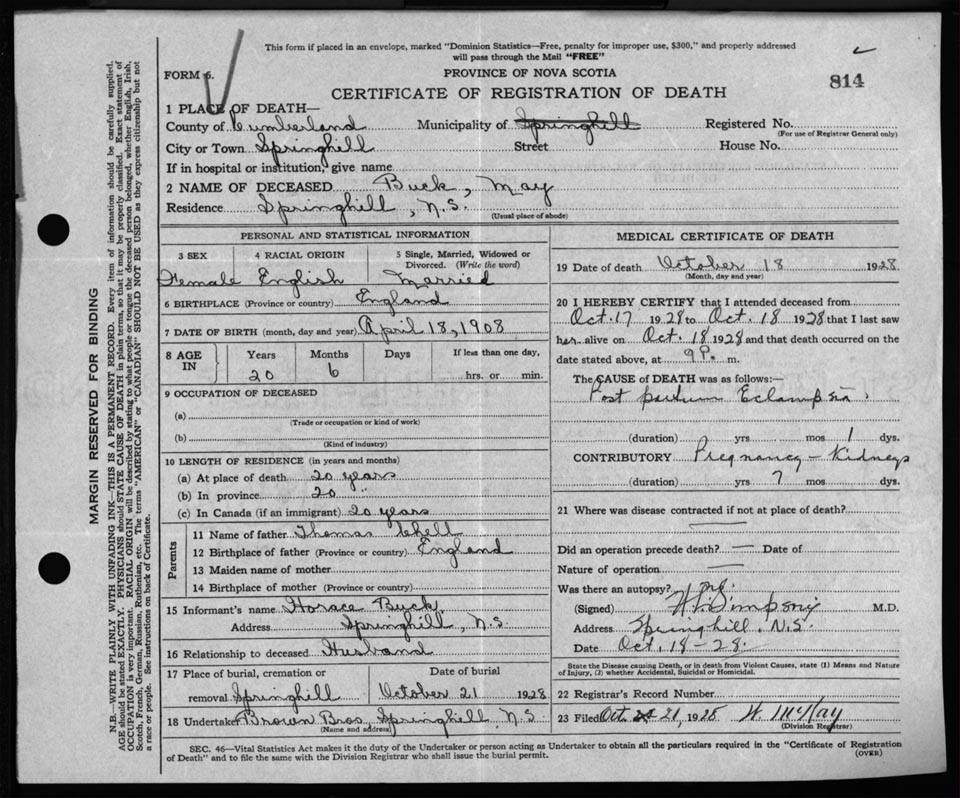 This form if placed in an envelope, marked "Dominion Statistics—Free, penalty for improper use, $300," and properly addressed
will pass through the Mail "FREE"
FORM 6.
PROVINCE OF NOVA SCOTIA
814
CERTIFICATE OF REGISTRATION OF DEATH
1 PLACE OF DEATH—
County of Cumberland Municipality of Springhill Registered No.
(For use of Registrar General only)
City or Town Springhill Street House No.
If in hospital or institution, give name
2 NAME OF DECEASED Buck, May
Residence Springhill, N.S.
(Usual place of abode)
PERSONAL AND STATISTICAL INFORMATION
3 SEX 4 RACIAL ORIGIN 5 Single, Married, Widowed or
Divorced. (Write the word)
Female English Married
6 BIRTHPLACE (Province or country) England
7 DATE OF BIRTH (month, day and year) April 18, 1908
8 AGE IN Years Months Days If less than one day,
20 6 hrs. or min.
9 OCCUPATION OF DECEASED
(a)
(Trade or occupation or kind of work)
(b)
(Kind of industry)
10 LENGTH OF RESIDENCE (in years and months)
(a) At place of death 20 years
(b) In province 20 "
(c) In Canada (if an immigrant) 20 years
Parents
11 Name of father Thomas
12 Birthplace of father (Province or country) England
13 Maiden name of mother
14 Birthplace of mother (Province or country)
15 Informant's name Horace Buck
Address Springhill, N.S.
16 Relationship to deceased Husband
17 Place of burial, cremation or Date of burial
removal Springhill October 21 1928
18 Undertaker Brown Bros, Springhill, N.S.
(Name and address)
MEDICAL CERTIFICATE OF DEATH
19 Date of death October 18 1928
(Month, day and year)
20 I HEREBY CERTIFY that I attended deceased from
Oct. 17 1928 to Oct. 18 1928 that I last saw
her alive on Oct. 18 1928 and that death occurred on the
date stated above, at 9 P. m.
The CAUSE of DEATH was as follows:—
Post partum Eclampsia.
(duration) yrs mos 1 dys.
CONTRIBUTORY Pregnancy — Kidneys
(duration) yrs 7 mos dys.
21 Where was disease contracted if not at place of death?
Did an operation precede death? — Date of
Nature of operation —
Was there an autopsy? no.
(Signed) Simpson M.D.
Address Springhill, N.S.
Date Oct. 19-28.
State the Disease causing Death, or in death from Violent Causes, state (1) Means and Nature
of Injury, (2) whether Accidental, Suicidal or Homicidal.
22 Registrar's Record Number
23 Filed Oct. 21, 1928 W. McKay
(Division Registrar)
SEC. 46—Vital Statistics Act makes it the duty of the Undertaker or person acting as Undertaker to obtain all the particulars required in the "Certificate of Registration
of Death" and to file the same with the Division Registrar who shall issue the burial permit. (OVER)
MARGIN RESERVED FOR BINDING
N.B.—WRITE PLAINLY WITH UNFADING INK—THIS IS A PERMANENT RECORD. Every item of information should be carefully supplied.
AGE should be stated EXACTLY. PHYSICIANS should STATE CAUSE OF DEATH in plain terms, so that it may be properly classified. Exact statement of
OCCUPATION is very important. RACIAL ORIGIN will be described by stating to what people or tongue the deceased person belonged, whether English, Irish,
Scotch, French, German, Russian, Ruthenian, etc. The terms "AMERICAN" or "CANADIAN" SHOULD NOT BE USED as they express citizenship but not
a race or people. See instructions on back of Certificate.